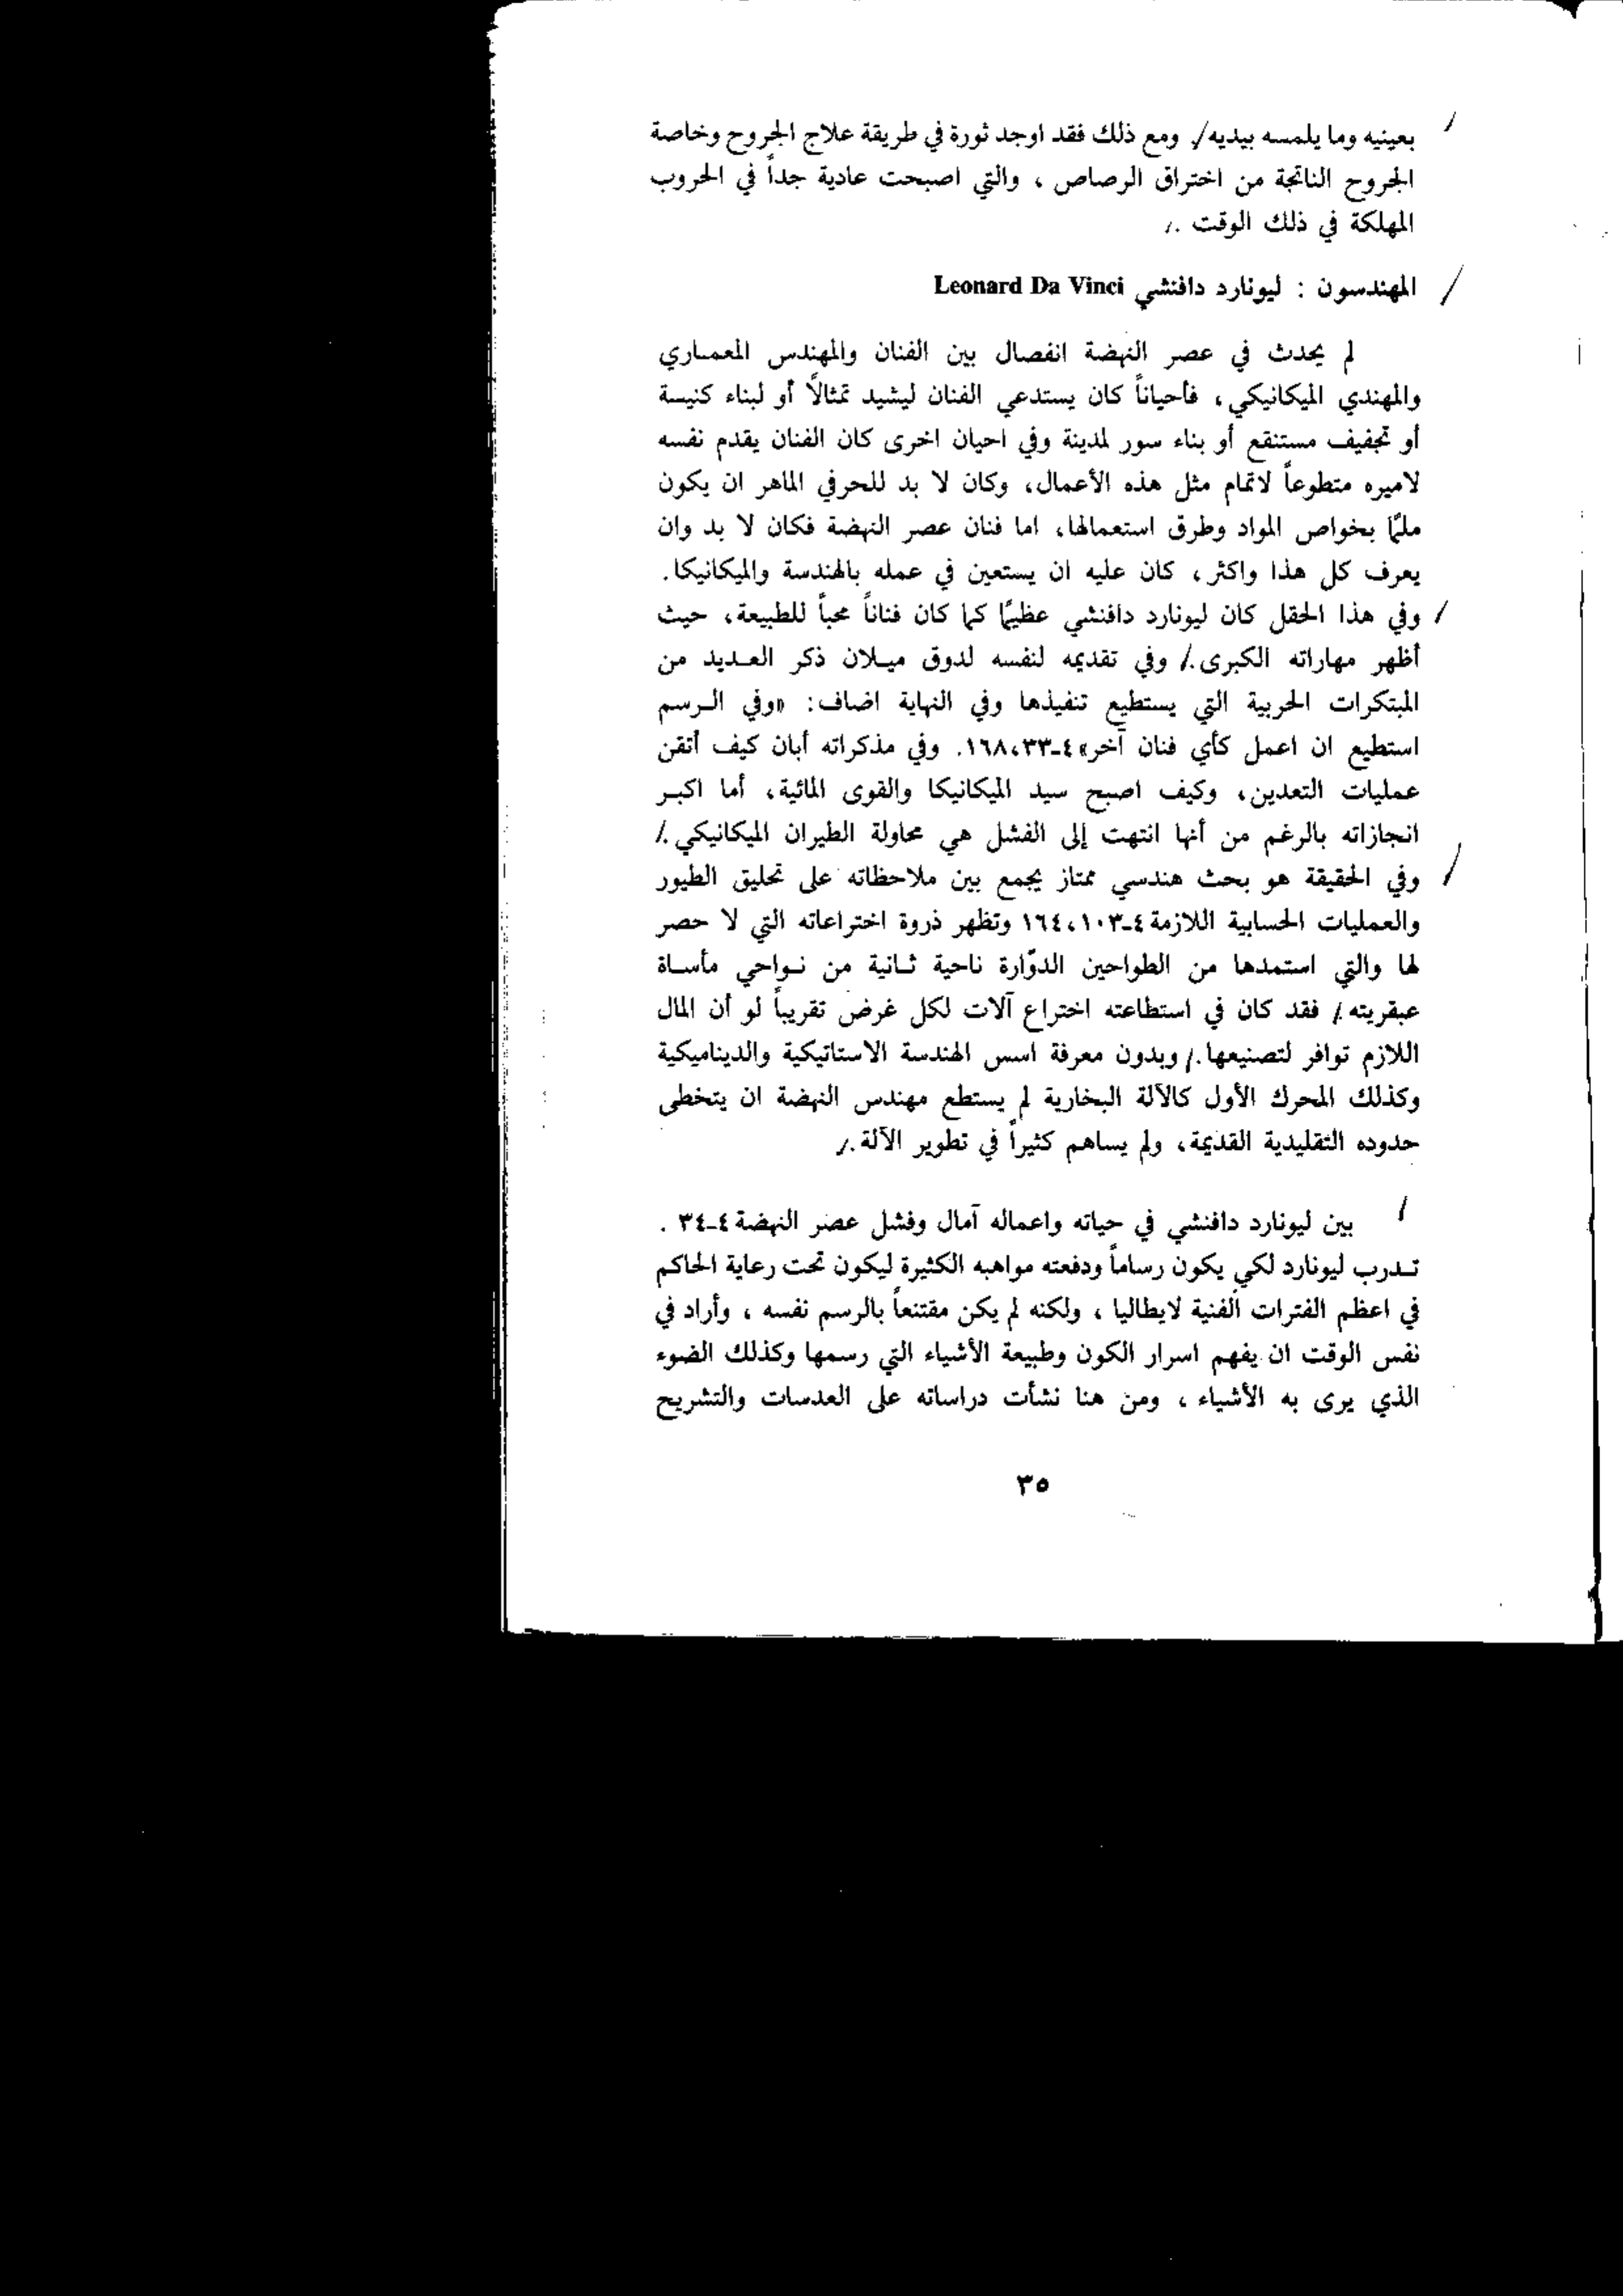 بعينيه وما يلمسه بيديه/. ومع ذلك فقد اوجد ثورة في طريقة علاج الجروح وخاصة
الجروح الناتجة من اختراق الرصاص ، والتي اصبحت عادية جداً في الحروب
المهلكة في ذلك الوقت ./
المهندسون : ليونارد دافنشي Leonard Da Vinci
لم يحدث في عصر النهضة انفصال بين الفنان والمهندس المعماري
والمهندي الميكانيكي، فأحياناً كان يستدعي الفنان ليشيد تمثالاً أو لبناء كنيسة
أو تجفيف مستنقع أو بناء سور لمدينة وفي احيان اخرى كان الفنان يقدم نفسه
لاميره متطوعاً لاتمام مثل هذه الأعمال، وكان لا بد للحرفي الماهر ان يكون
ملمًا بخواص المواد وطرق استعمالها، اما فنان عصر النهضة فكان لا بد وان
يعرف كل هذا واكثر، كان عليه ان يستعين في عمله بالهندسة والميكانيكا.
وفي هذا الحقل كان ليونارد دافنشي عظيمًا كما كان فناناً محباً للطبيعة، حيث
أظهر مهاراته الكبرى./ وفي تقديمه لنفسه لدوق ميلان ذكر العديد من
المبتكرات الحربية التي يستطيع تنفيذها وفي النهاية اضاف: «وفي الرسم
استطيع ان اعمل كأي فنان آخر» ٤-٣٣،١٦٨. وفي مذكراته أبان كيف أتقن
عمليات التعدين، وكيف اصبح سيد الميكانيكا والقوى المائية، أما اكبر
انجازاته بالرغم من أنها انتهت إلى الفشل هي محاولة الطيران الميكانيكي./
وفي الحقيقة هو بحث هندسي ممتاز يجمع بين ملاحظاته على تحليق الطيور
والعمليات الحسابية اللازمة ٤-١٠٣،١٦٤ وتظهر ذروة اختراعاته التي لا حصر
لها والتي استمدها من الطواحين الدوّارة ناحية ثانية من نواحي مأساة
عبقريته/. فقد كان في استطاعته اختراع آلات لكل غرض تقريباً لو أن المال
اللازم توافر لتصنيعها./ وبدون معرفة اسس الهندسة الاستاتيكية والديناميكية
وكذلك المحرك الأول كالآلة البخارية لم يستطع مهندس النهضة ان يتخطى
حدوده التقليدية القديمة، ولم يساهم كثيراً في تطوير الآلة./
بين ليونارد دافنشي في حياته واعماله آمال وفشل عصر النهضة ٤-٣٤ .
تدرب ليونارد لكي يكون رساماً ودفعته مواهبه الكثيرة ليكون تحت رعاية الحاكم
في اعظم الفترات الفنية لايطاليا ، ولكنه لم يكن مقتنعاً بالرسم نفسه ، وأراد في
نفس الوقت ان يفهم اسرار الكون وطبيعة الأشياء التي رسمها وكذلك الضوء
الذي يرى به الأشياء ، ومن هنا نشأت دراساته على العدسات والتشريح
٣٥